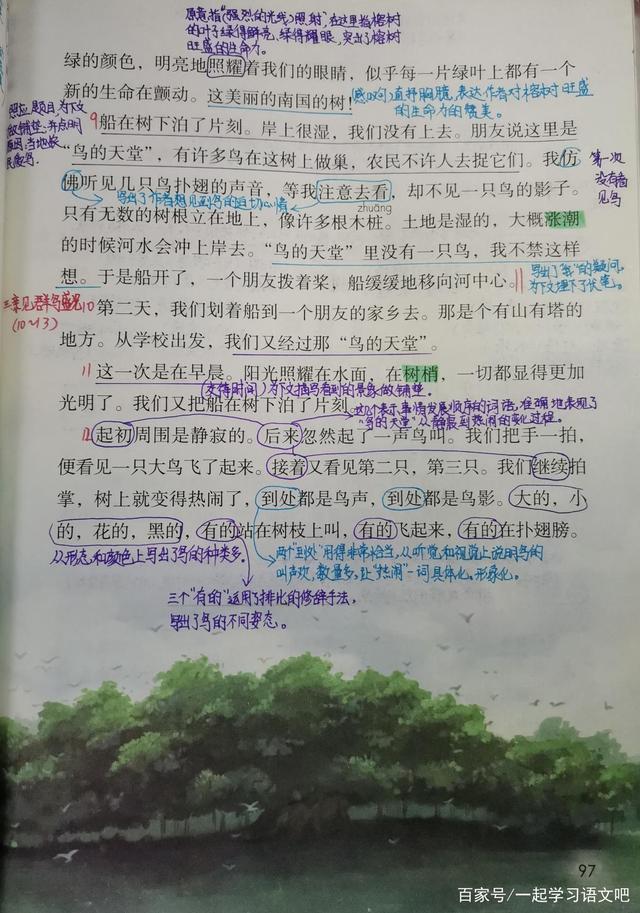 原意指“(强烈的光线)照射”,在这里指榕树
的叶子绿得鲜亮、绿得耀眼,突出了榕树
旺盛的生命力。
绿的颜色,明亮地照耀着我们的眼睛,似乎每一片绿叶上都有一个
新的生命在颤动。这美丽的南国的树!
感叹句,直抒胸臆,表达作者对榕树旺盛
的生命力的赞美。
照应题目,为下文
做铺垫,并点明
原因,当地农
民爱鸟。
9船在树下泊了片刻。岸上很湿,我们没有上去。朋友说这里是
“鸟的天堂”,有许多鸟在这树上做巢,农民不许人去捉它们。我仿
第一次
没有看
见鸟
佛听见几只鸟扑翅的声音,等我注意去看,却不见一只鸟的影子。
写出了作者想见到鸟的迫切心情
zhuāng
只有无数的树根立在地上,像许多根木桩。土地是湿的,大概涨潮
的时候河水会冲上岸去。“鸟的天堂”里没有一只鸟,我不禁这样
想。于是船开了,一个朋友拨着桨,船缓缓地移向河中心。||
写出了“我”的疑问,
为下文埋下了伏笔。
三:亲见群鸟盛况
(10~13)
10第二天,我们划着船到一个朋友的家乡去。那是个有山有塔的
地方。从学校出发,我们又经过那“鸟的天堂”。
11这一次是在早晨。阳光照耀在水面,在树梢,一切都显得更加
(交待时间)为下文描写看到的景象做铺垫。
光明了。我们又把船在树下泊了片刻。
这几个表示事情发展顺序的词语,准确地表现了
“鸟的天堂”从静寂到热闹的变化过程。
12起初周围是静寂的。后来忽然起了一声鸟叫。我们把手一拍,
便看见一只大鸟飞了起来。接着又看见第二只,第三只。我们继续拍
掌,树上就变得热闹了,到处都是鸟声,到处都是鸟影。大的,小
的,花的,黑的,有的站在树枝上叫,有的飞起来,有的在扑翅膀。
从形态和颜色上写出了鸟的种类多。
两个“到处”用得非常恰当,从听觉和视觉上说明鸟的
叫声欢,数量多,让“热闹”一词具体化、形象化。
三个“有的”运用了排比的修辞手法,
写出了鸟的不同姿态。
97
百家号/一起学习语文吧